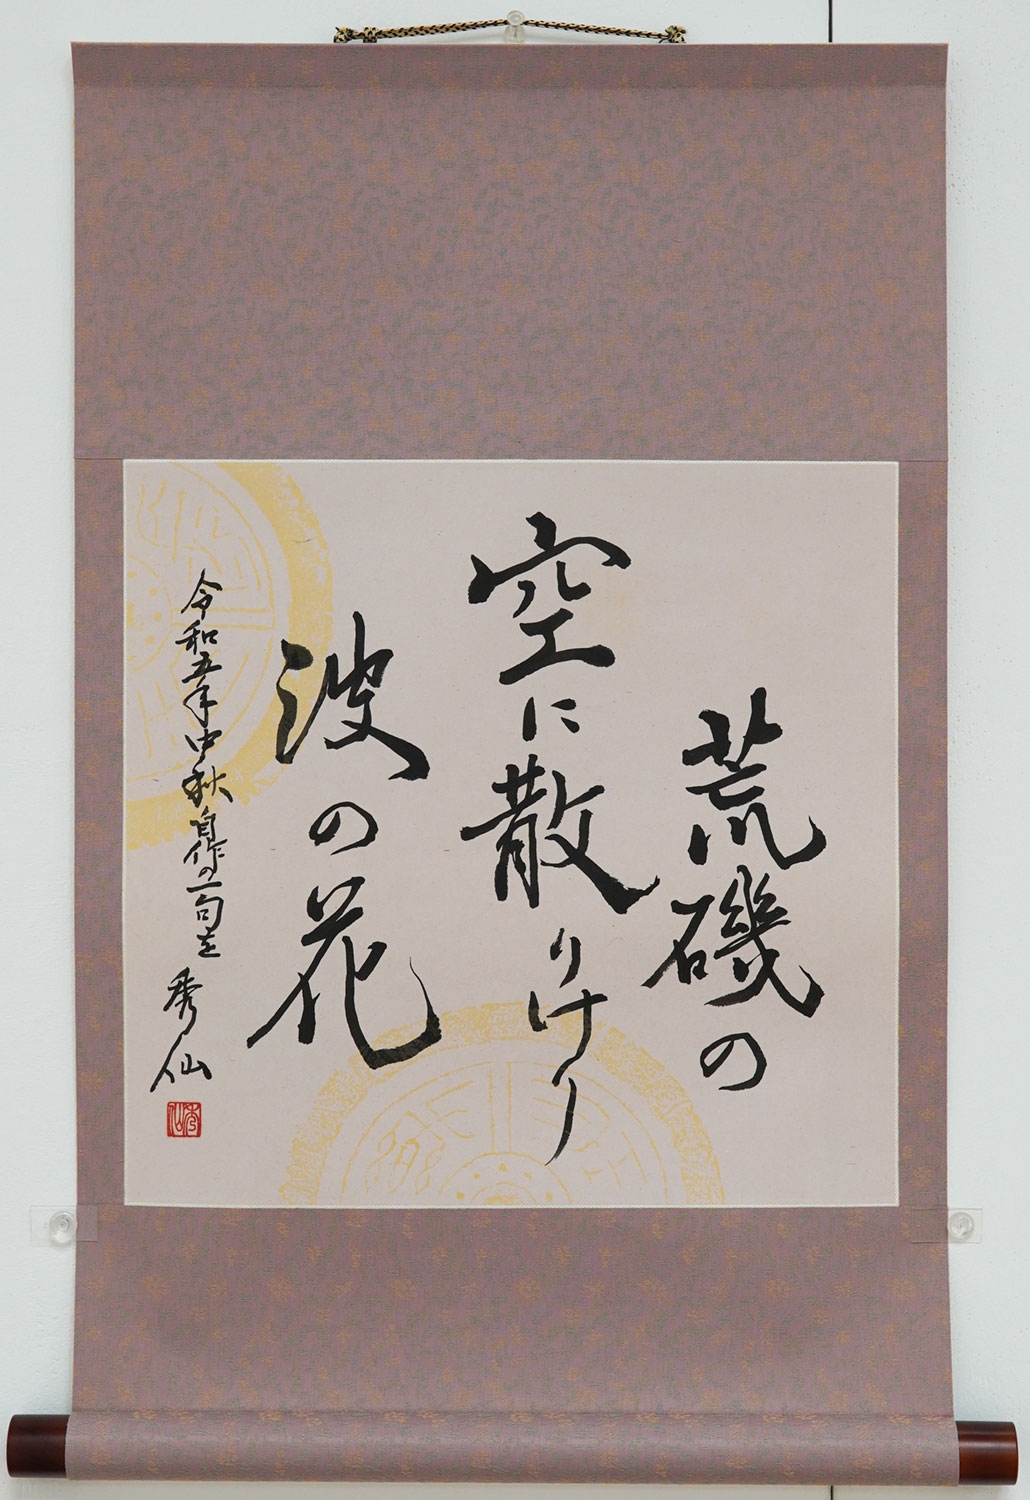 荒磯の
空に散りけり
波の花
令和五年中秋自作の一句を
秀仙
秀仙